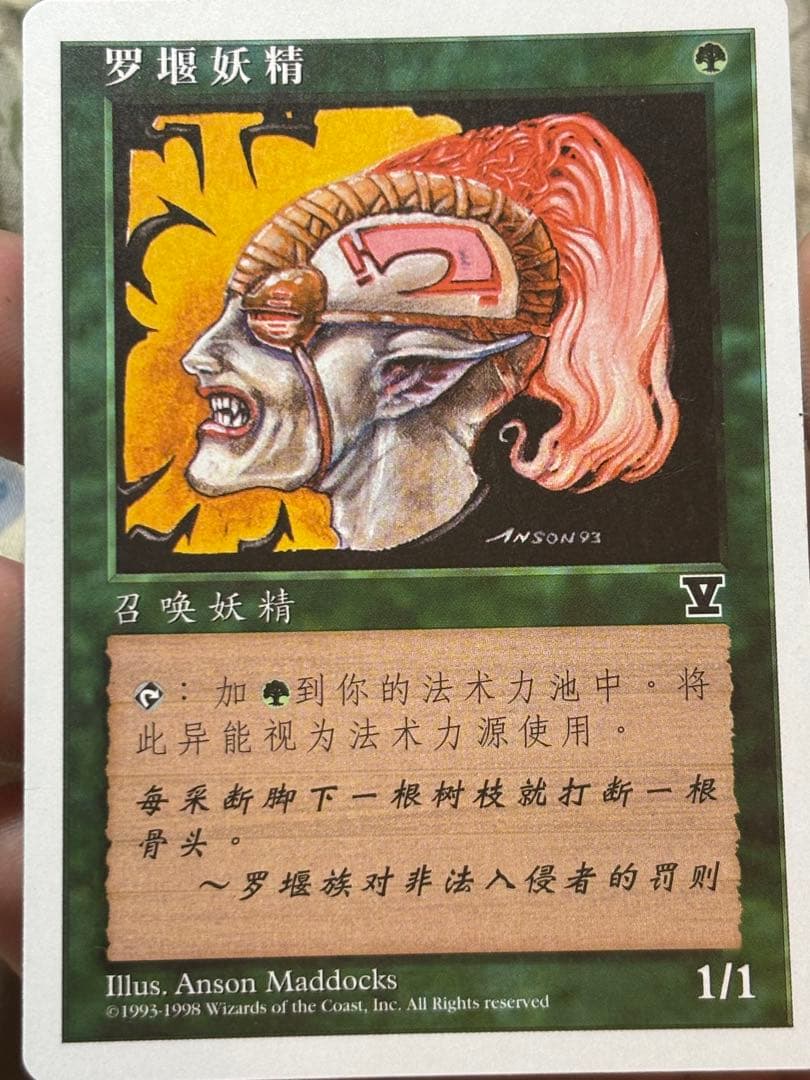 罗堰妖精
ANSON93
召唤妖精
V
：加 到你的法术力池中。将
此异能视为法术力源使用。
每采断脚下一根树枝就打断一根
骨头。
～罗堰族对非法入侵者的罚则
Illus. Anson Maddocks
©1993-1998 Wizards of the Coast, Inc. All Rights reserved
1/1